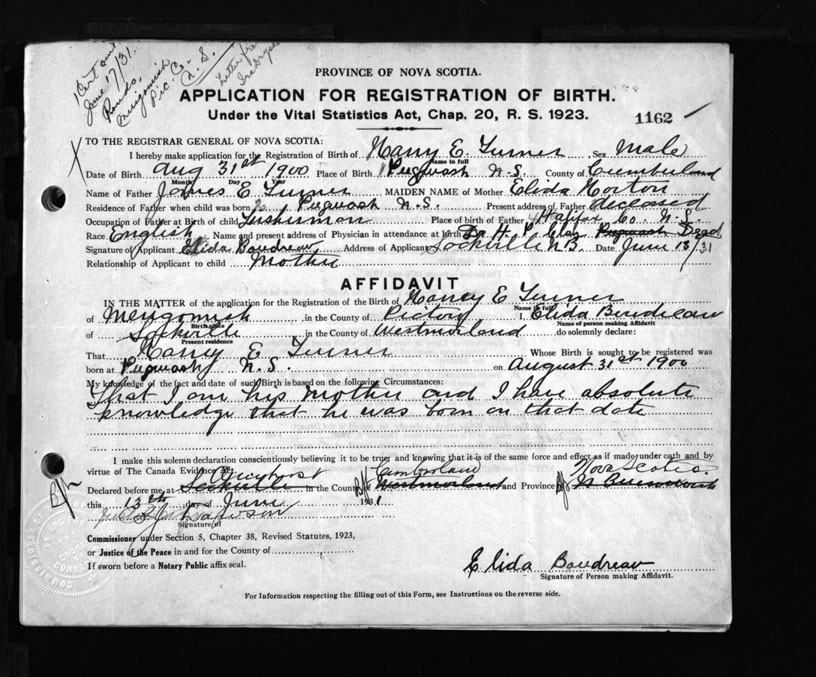 1 Cert sent
June 17/31.
Merigomish
Pic. Co.
N. S.
PROVINCE OF NOVA SCOTIA.
APPLICATION FOR REGISTRATION OF BIRTH.
Under the Vital Statistics Act, Chap. 20, R. S. 1923.
1162
TO THE REGISTRAR GENERAL OF NOVA SCOTIA:
I hereby make application for the Registration of Birth of Harry E. Turner Sex Male
Name in full
Date of Birth Aug 31st 1900 Place of Birth Pugwash N.S. County of Cumberland
Month Day Year
Name of Father James E. Turner MAIDEN NAME of Mother Elida Horton
Residence of Father when child was born Pugwash N.S. Present address of Father deceased
Occupation of Father at Birth of child Fisherman Place of birth of Father Halifax Co. N.S.
Race English Name and present address of Physician in attendance at birth Dr. H. P. Clay Pugwash Dead
Signature of Applicant Elida Boudreau Address of Applicant Sackville N.B. Date June 13/31
Relationship of Applicant to child Mother
AFFIDAVIT
IN THE MATTER of the application for the Registration of the Birth of Harry E Turner
Name in full
of Merigomish in the County of Pictou I, Elida Boudreau
Birth place Name of person making Affidavit
of Sackville in the County of Westmorland do solemnly declare:
Present residence
That Harry E Turner Whose Birth is sought to be registered was
born at Pugwash N.S. on August 31st 1900
My knowledge of the fact and date of such Birth is based on the following Circumstances:
That I am his mother and I have absolute
knowledge that he was born on that date
I make this solemn declaration conscientiously believing it to be true, and knowing that it is of the same force and effect as if made under oath and by
virtue of The Canada Evidence Act. Amherst Cumberland Nova Scotia
Declared before me at Sackville in the County of Westmorland and Province of N Brunswick
this 13th day of June 1931
Signature of
Commissioner under Section 5, Chapter 38, Revised Statutes, 1923,
or Justice of the Peace in and for the County of
If sworn before a Notary Public affix seal.
Elida Boudreau
Signature of Person making Affidavit.
For Information respecting the filling out of this Form, see Instructions on the reverse side.